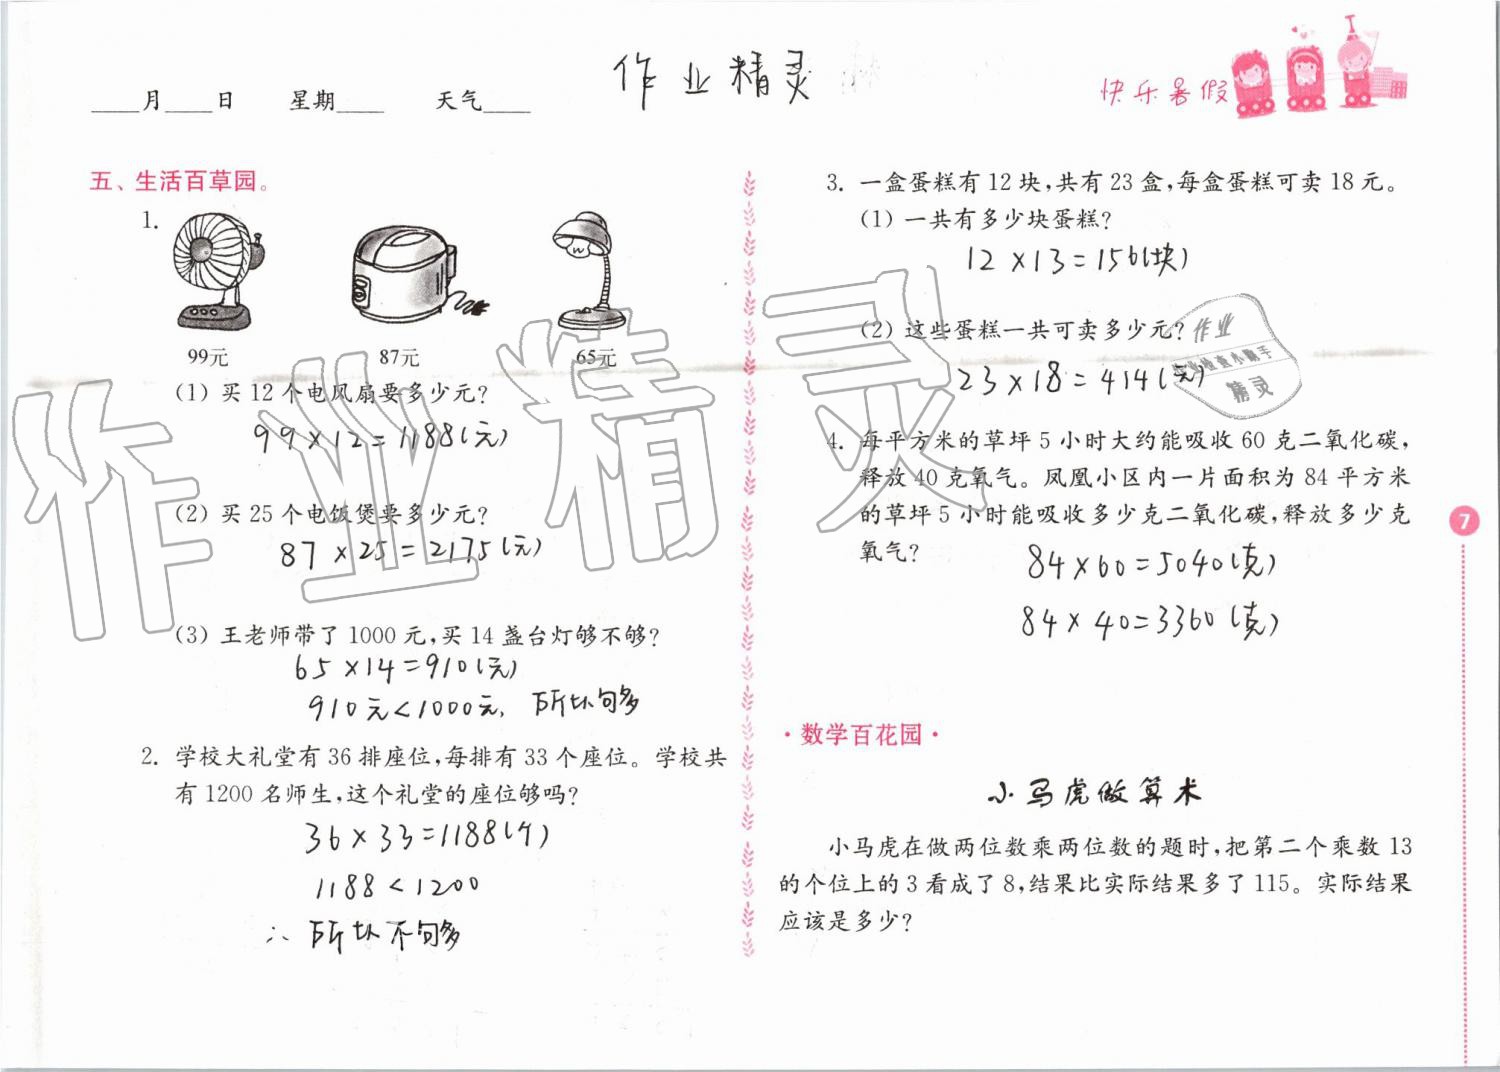 作业精灵
____月____日 星期____ 天气____
快乐暑假
五、生活百草园。
1.
99元 87元 65元
(1) 买 12 个电风扇要多少元?
99×12=1188(元)
(2) 买 25 个电饭煲要多少元?
87×25=2175(元)
(3) 王老师带了 1000 元,买 14 盏台灯够不够?
65×14=910(元)
910元<1000元, 所以够
2. 学校大礼堂有 36 排座位,每排有 33 个座位。学校共
有 1200 名师生,这个礼堂的座位够吗?
36×33=1188(个)
1188<1200
∴ 所以不够
3. 一盒蛋糕有 12 块,共有 23 盒,每盒蛋糕可卖 18 元。
(1) 一共有多少块蛋糕?
12×13=156(块)
(2) 这些蛋糕一共可卖多少元?
23×18=414(元)
作业
检查小助手
精灵
4. 每平方米的草坪 5 小时大约能吸收 60 克二氧化碳,
释放 40 克氧气。凤凰小区内一片面积为 84 平方米
的草坪 5 小时能吸收多少克二氧化碳,释放多少克
氧气?
84×60=5040(克)
84×40=3360(克)
·数学百花园·
小马虎做算术
小马虎在做两位数乘两位数的题时,把第二个乘数 13
的个位上的 3 看成了 8,结果比实际结果多了 115。实际结果
应该是多少?
7
作业精灵